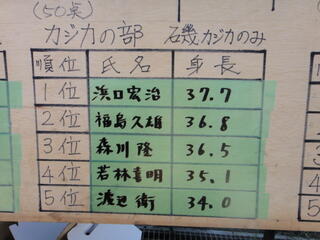 (50点)
カジカの部 石磯カジカのみ
順位 氏名 身長
1位 浜口宏治 37.7
2位 福島久雄 36.8
3位 森川隆 36.5
4位 若林喜明 35.1
5位 渡辺衛 34.0